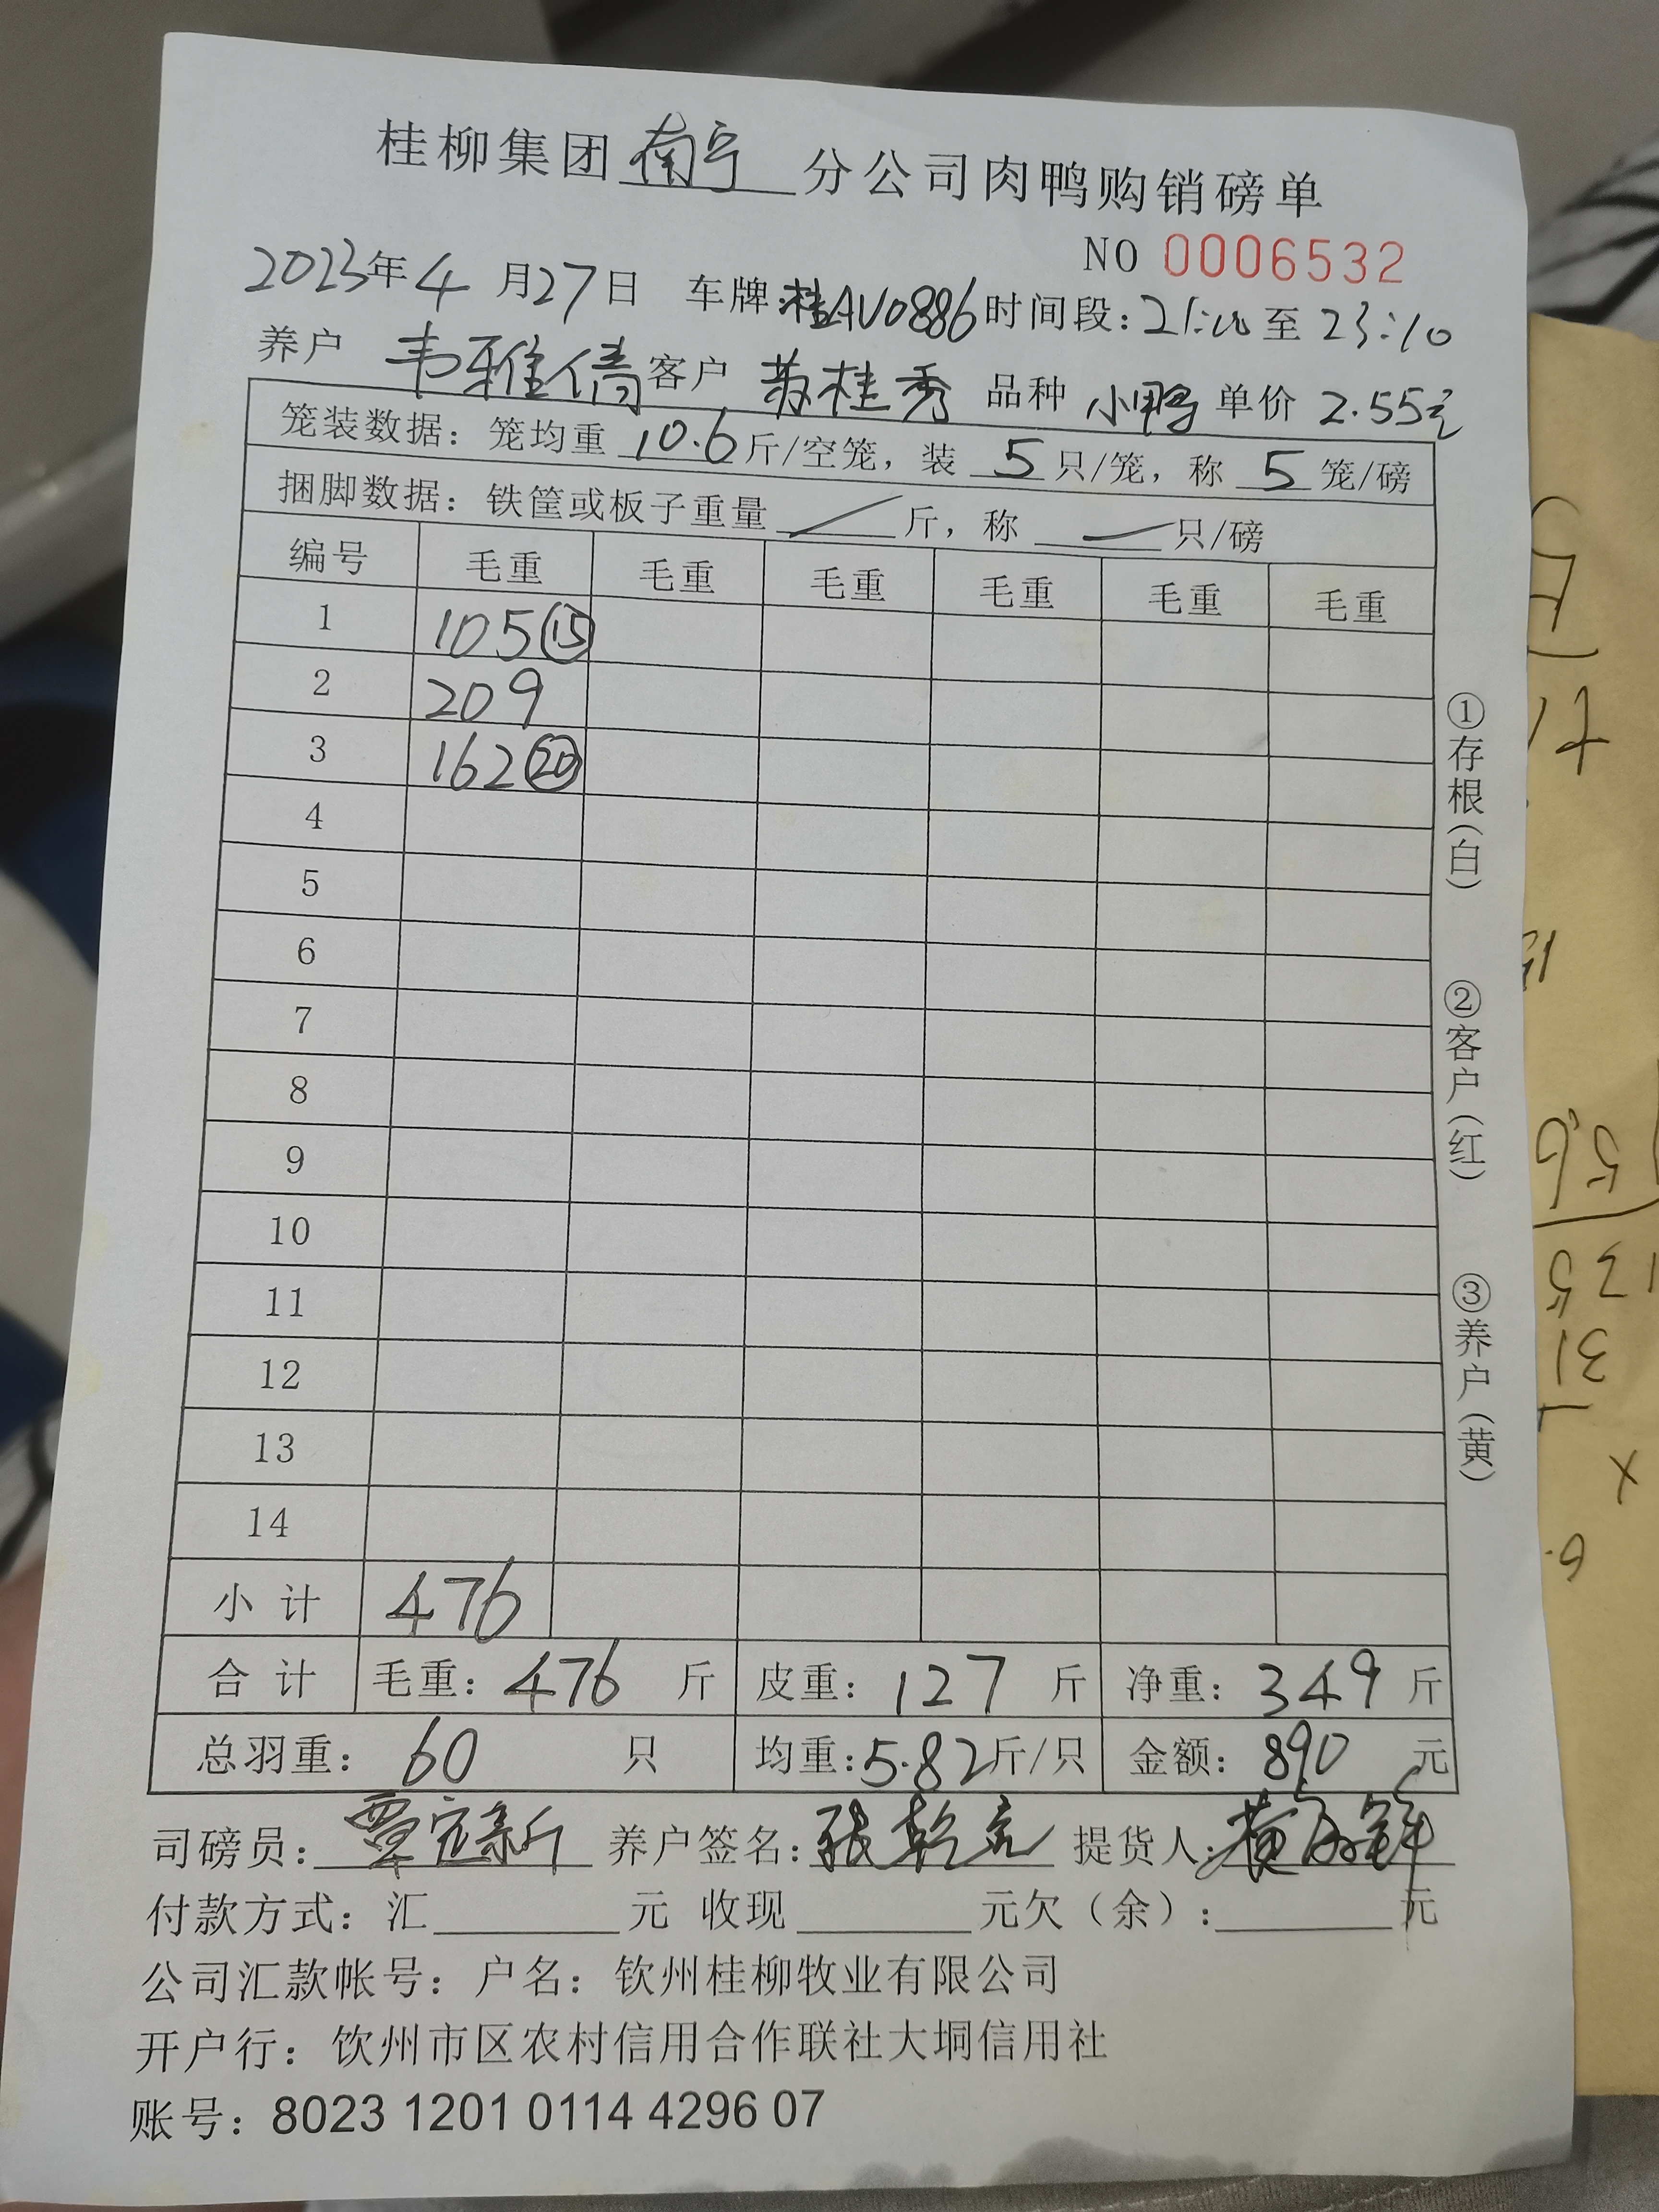 桂柳集团南宁分公司肉鸭购销磅单
NO 0006532
2023年4月27日 车牌:桂AV0886 时间段:21:00至23:10
养户 韦雅倩 客户 苏桂秀 品种 小鸭 单价 2.55元
笼装数据:笼均重 10.6 斤/空笼,装 5 只/笼,称 5 笼/磅
捆脚数据:铁筐或板子重量 / 斤,称 — 只/磅
编号 毛重 毛重 毛重 毛重 毛重 毛重
1 105 ⑮
2 209
3 162 ⑳
4
5
6
7
8
9
10
11
12
13
14
小计 476
合计 毛重:476 斤 皮重:127 斤 净重:349 斤
总羽重:60 只 均重:5.82斤/只 金额:890 元
司磅员: 养户签名: 提货人:
付款方式:汇 元 收现 元欠(余): 元
公司汇款帐号:户名:钦州桂柳牧业有限公司
开户行:钦州市区农村信用合作联社大垌信用社
账号:8023 1201 0114 4296 07
①存根(白)
②客户(红)
③养户(黄)